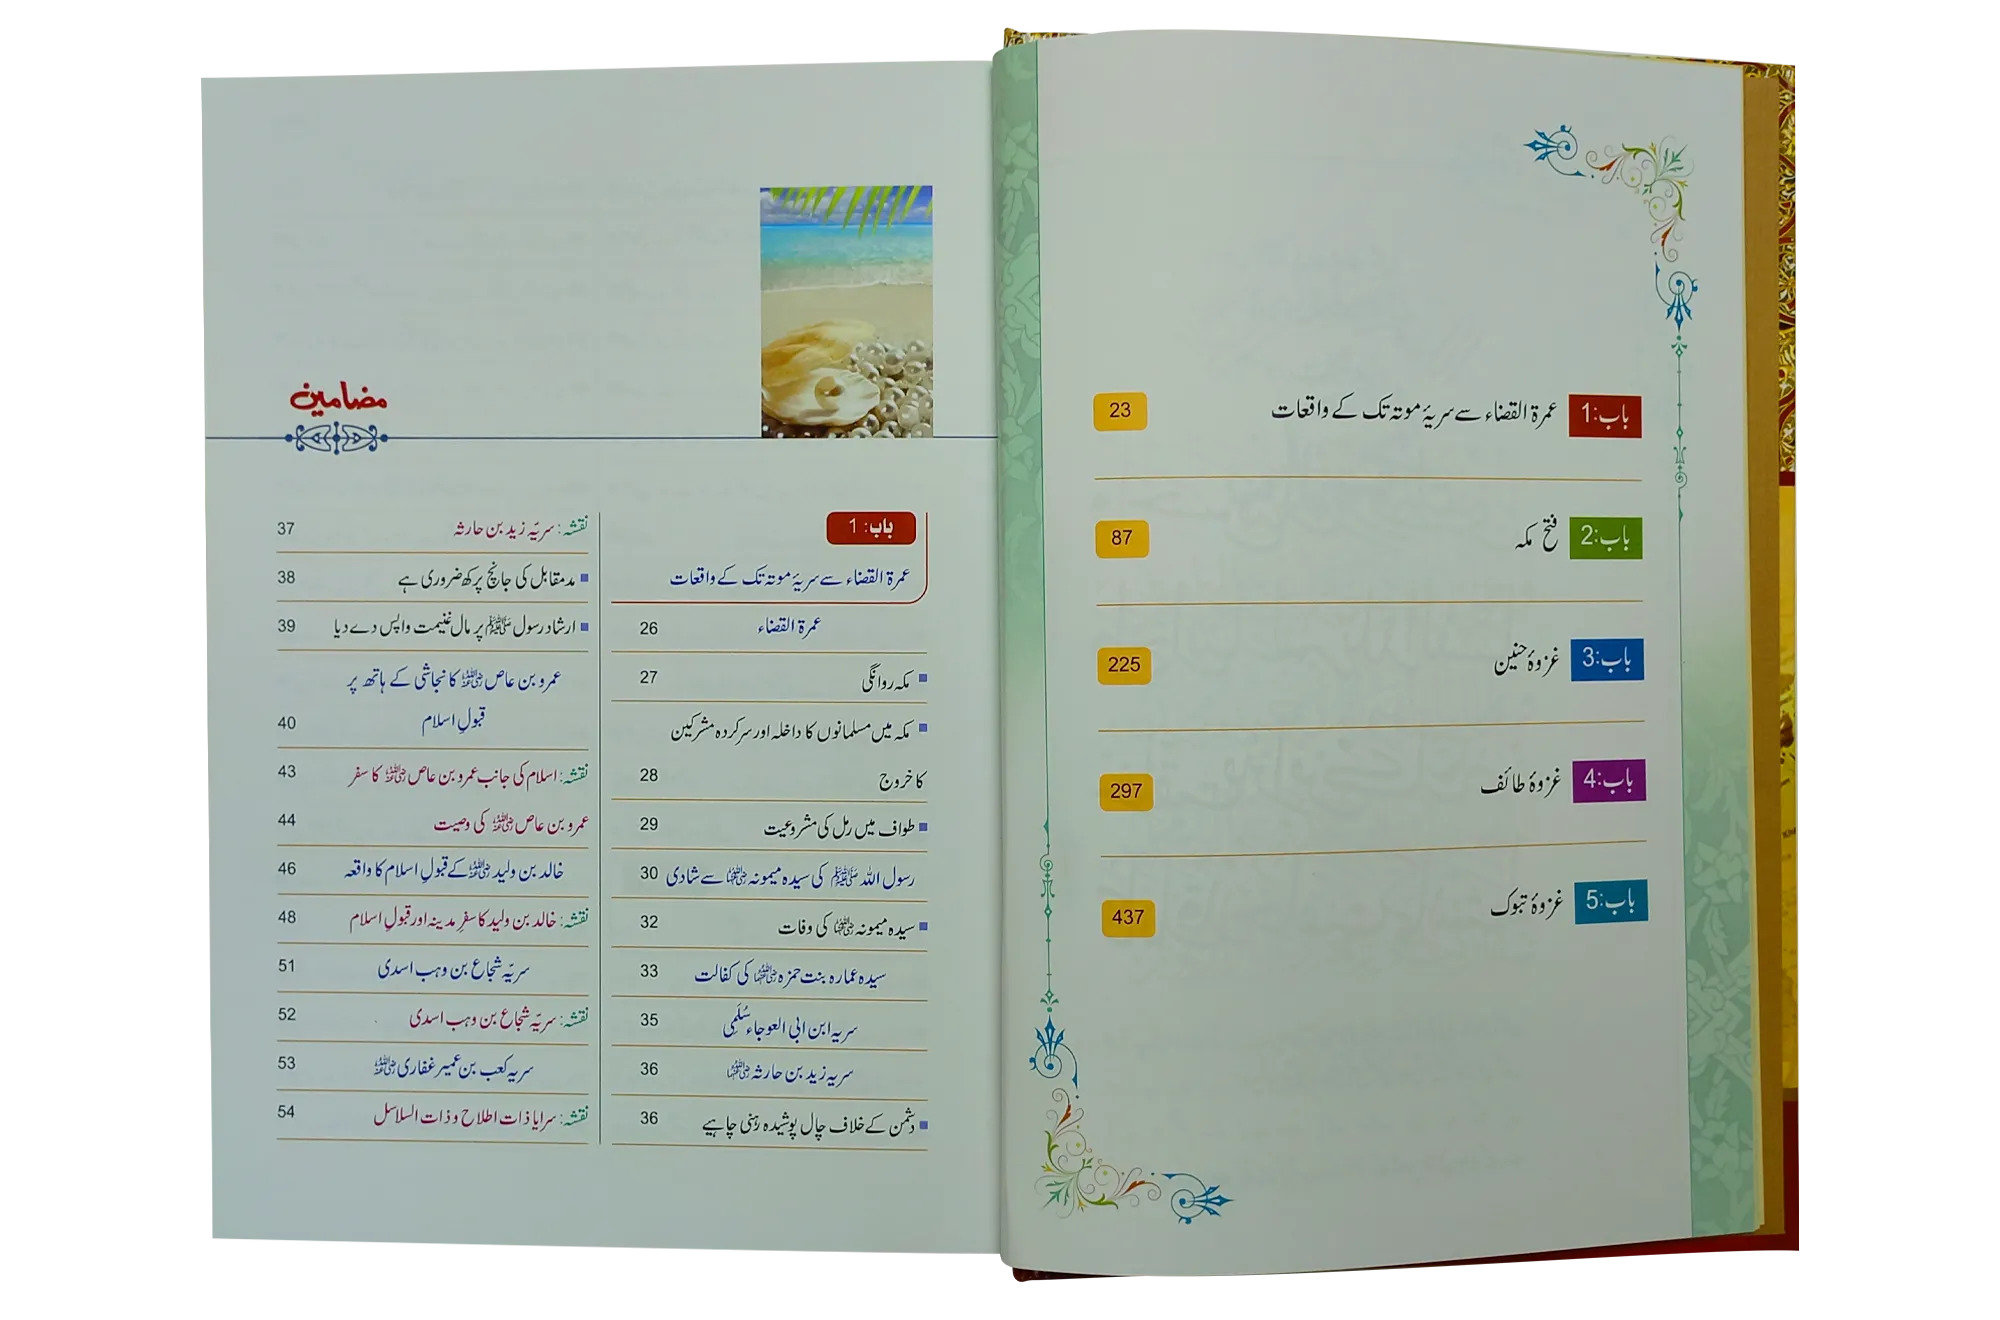 باب:1 عمرۃ القضاء سے سریۂ موتہ تک کے واقعات 23
باب:2 فتح مکہ 87
باب:3 غزوۂ حنین 225
باب:4 غزوۂ طائف 297
باب:5 غزوۂ تبوک 437
مضامین
باب: 1
عمرۃ القضاء سے سریۂ موتہ تک کے واقعات
عمرۃ القضاء 26
مکہ روانگی 27
مکہ میں مسلمانوں کا داخلہ اور سرکردہ مشرکین
کا خروج 28
طواف میں رمل کی مشروعیت 29
رسول اللہ ﷺ کی سیدہ میمونہ رضی اللہ عنہا سے شادی 30
سیدہ میمونہ رضی اللہ عنہا کی وفات 32
سیدہ عمارہ بنت حمزہ رضی اللہ عنہا کی کفالت 33
سریہ ابن ابی العوجاء سُلَمِی 35
سریہ زید بن حارثہ رضی اللہ عنہما 36
دشمن کے خلاف چال پوشیدہ رہنی چاہیے 36
نقشہ: سریّہ زید بن حارثہ 37
مدمقابل کی جانچ پرکھ ضروری ہے 38
ارشاد رسول ﷺ پر مال غنیمت واپس دے دیا 39
عمرو بن عاص رضی اللہ عنہ کا نجاشی کے ہاتھ پر
قبولِ اسلام 40
نقشہ: اسلام کی جانب عمرو بن عاص رضی اللہ عنہ کا سفر 43
عمرو بن عاص رضی اللہ عنہ کی وصیت 44
خالد بن ولید رضی اللہ عنہ کے قبولِ اسلام کا واقعہ 46
نقشہ: خالد بن ولید کا سفرِ مدینہ اور قبولِ اسلام 48
سریّہ شجاع بن وہب اسدی 51
نقشہ: سریّہ شجاع بن وہب اسدی 52
سریہ کعب بن عمیر غفاری رضی اللہ عنہ 53
نقشہ: سرایا ذات اطلاح و ذات السلاسل 54